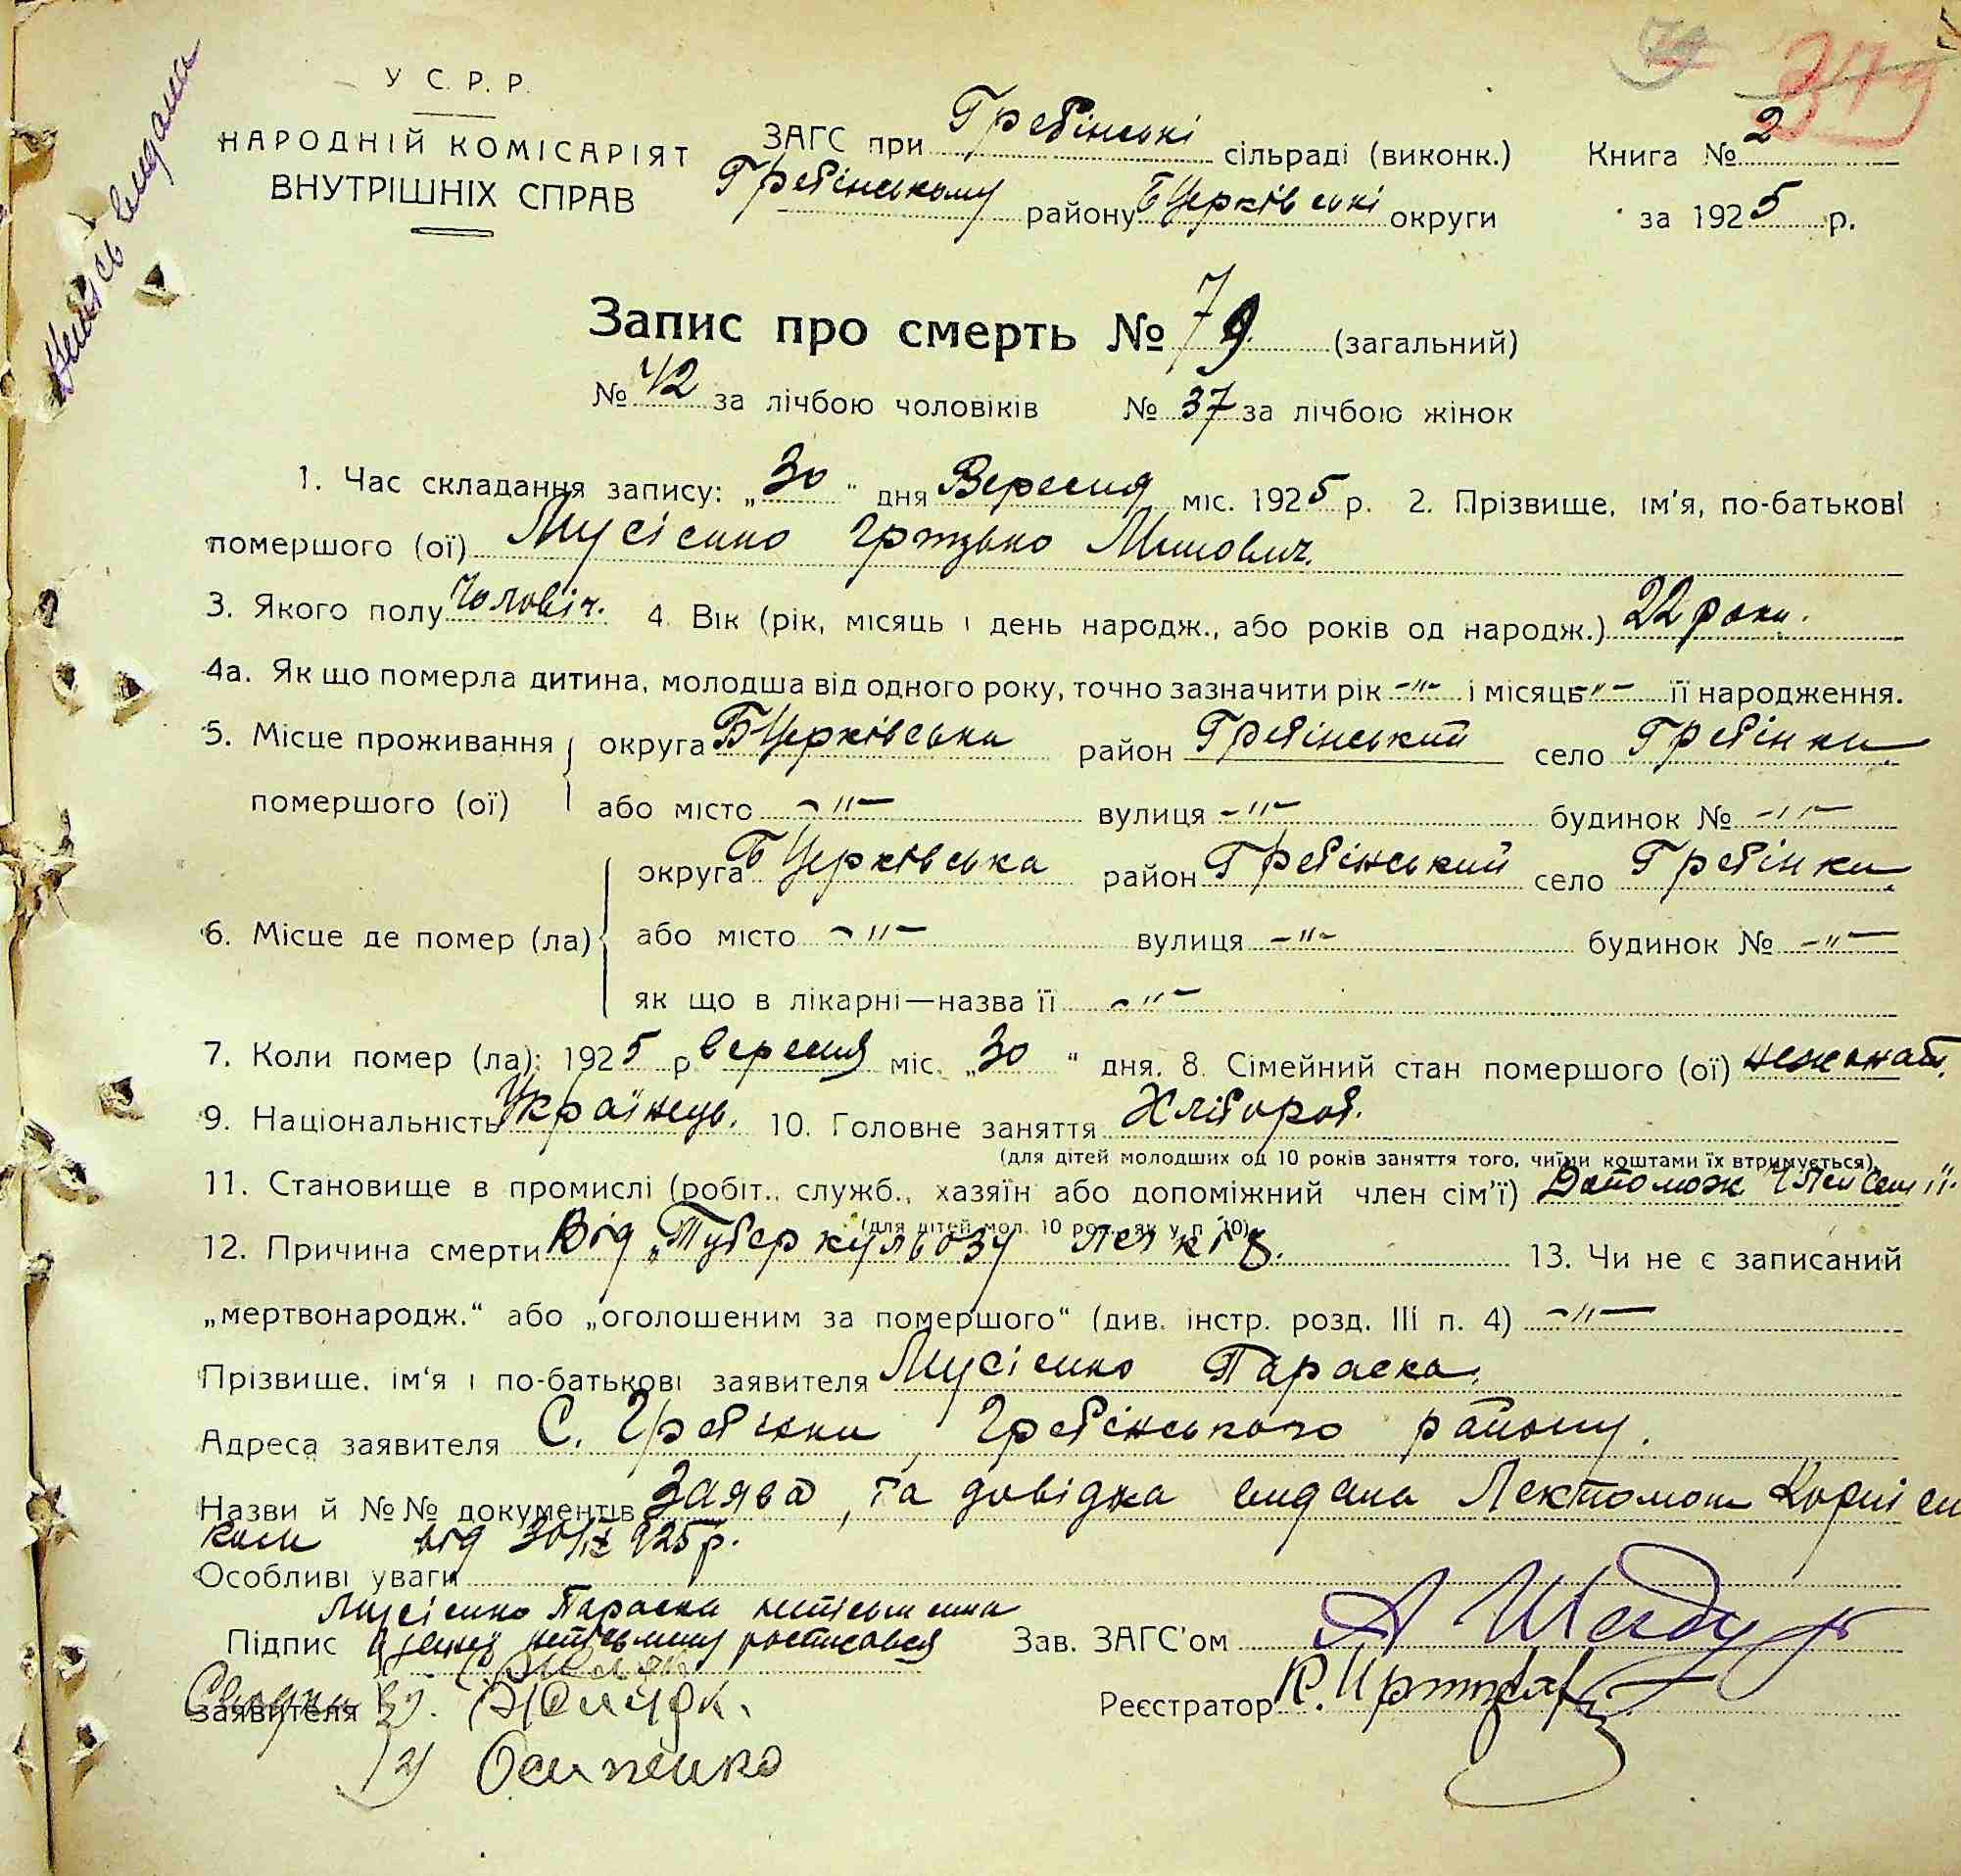 У С. Р. Р.
НАРОДНІЙ КОМІСАРІЯТ
ВНУТРІШНІХ СПРАВ
ЗАГС при Гребінські сільраді (виконк.)
Гребінському району БЦерківські округи
Книга № 2
за 1925 р.
379
Запис про смерть № 79. (загальний)
№ 42 за лічбою чоловіків № 37 за лічбою жінок
1. Час складання запису: „30" дня Вересня міс. 1925 р. 2. Прізвище, ім'я, по-батькові
помершого (ої) Мусієнко Грицько
3. Якого полу Чоловіч. 4. Вік (рік, місяць і день народж., або років од народж.) 22 роки.
4а. Як що померла дитина, молодша від одного року, точно зазначити рік -"- і місяць -"- її народження.
5. Місце проживання округа БЦерківська район Гребінський село Гребінки
помершого (ої) або місто -"- вулиця -"- будинок № -"-
округа БЦерківська район Гребінський село Гребінки
6. Місце де помер (ла) або місто -"- вулиця -"- будинок № -"-
як що в лікарні—назва її -"-
7. Коли помер (ла): 1925 р вересня міс. „30" дня. 8. Сімейний стан помершого (ої) нежонат.
9. Національність Українець. 10. Головне заняття Хлібороб.
(для дітей молодших од 10 років заняття того, чиїми коштами їх втримується)
11. Становище в промислі (робіт., служб., хазяїн або допоміжний член сім'ї) Допомож член сем'ї.
(для дітей мол. 10 рок. як у п. 10)
12. Причина смерти Від „Туберкульозу легків. 13. Чи не є записаний
„мертвонародж." або „оголошеним за помершого" (див. інстр. розд. III п. 4) -"-
Прізвище, ім'я і по-батькові заявителя Мусієнко Параска.
Адреса заявителя С. Гребінки, Гребінського району.
Назви й №№ документів Заява, та довідка видана Лекпомом Корнієн
ком від 30/IX 925 р.
Особливі уваги
Мусієнко Параска неписьменна
Підпис а за неї неписьменну росписався
заявителя
2) Осипенко
Зав. ЗАГС'ом
Реєстратор